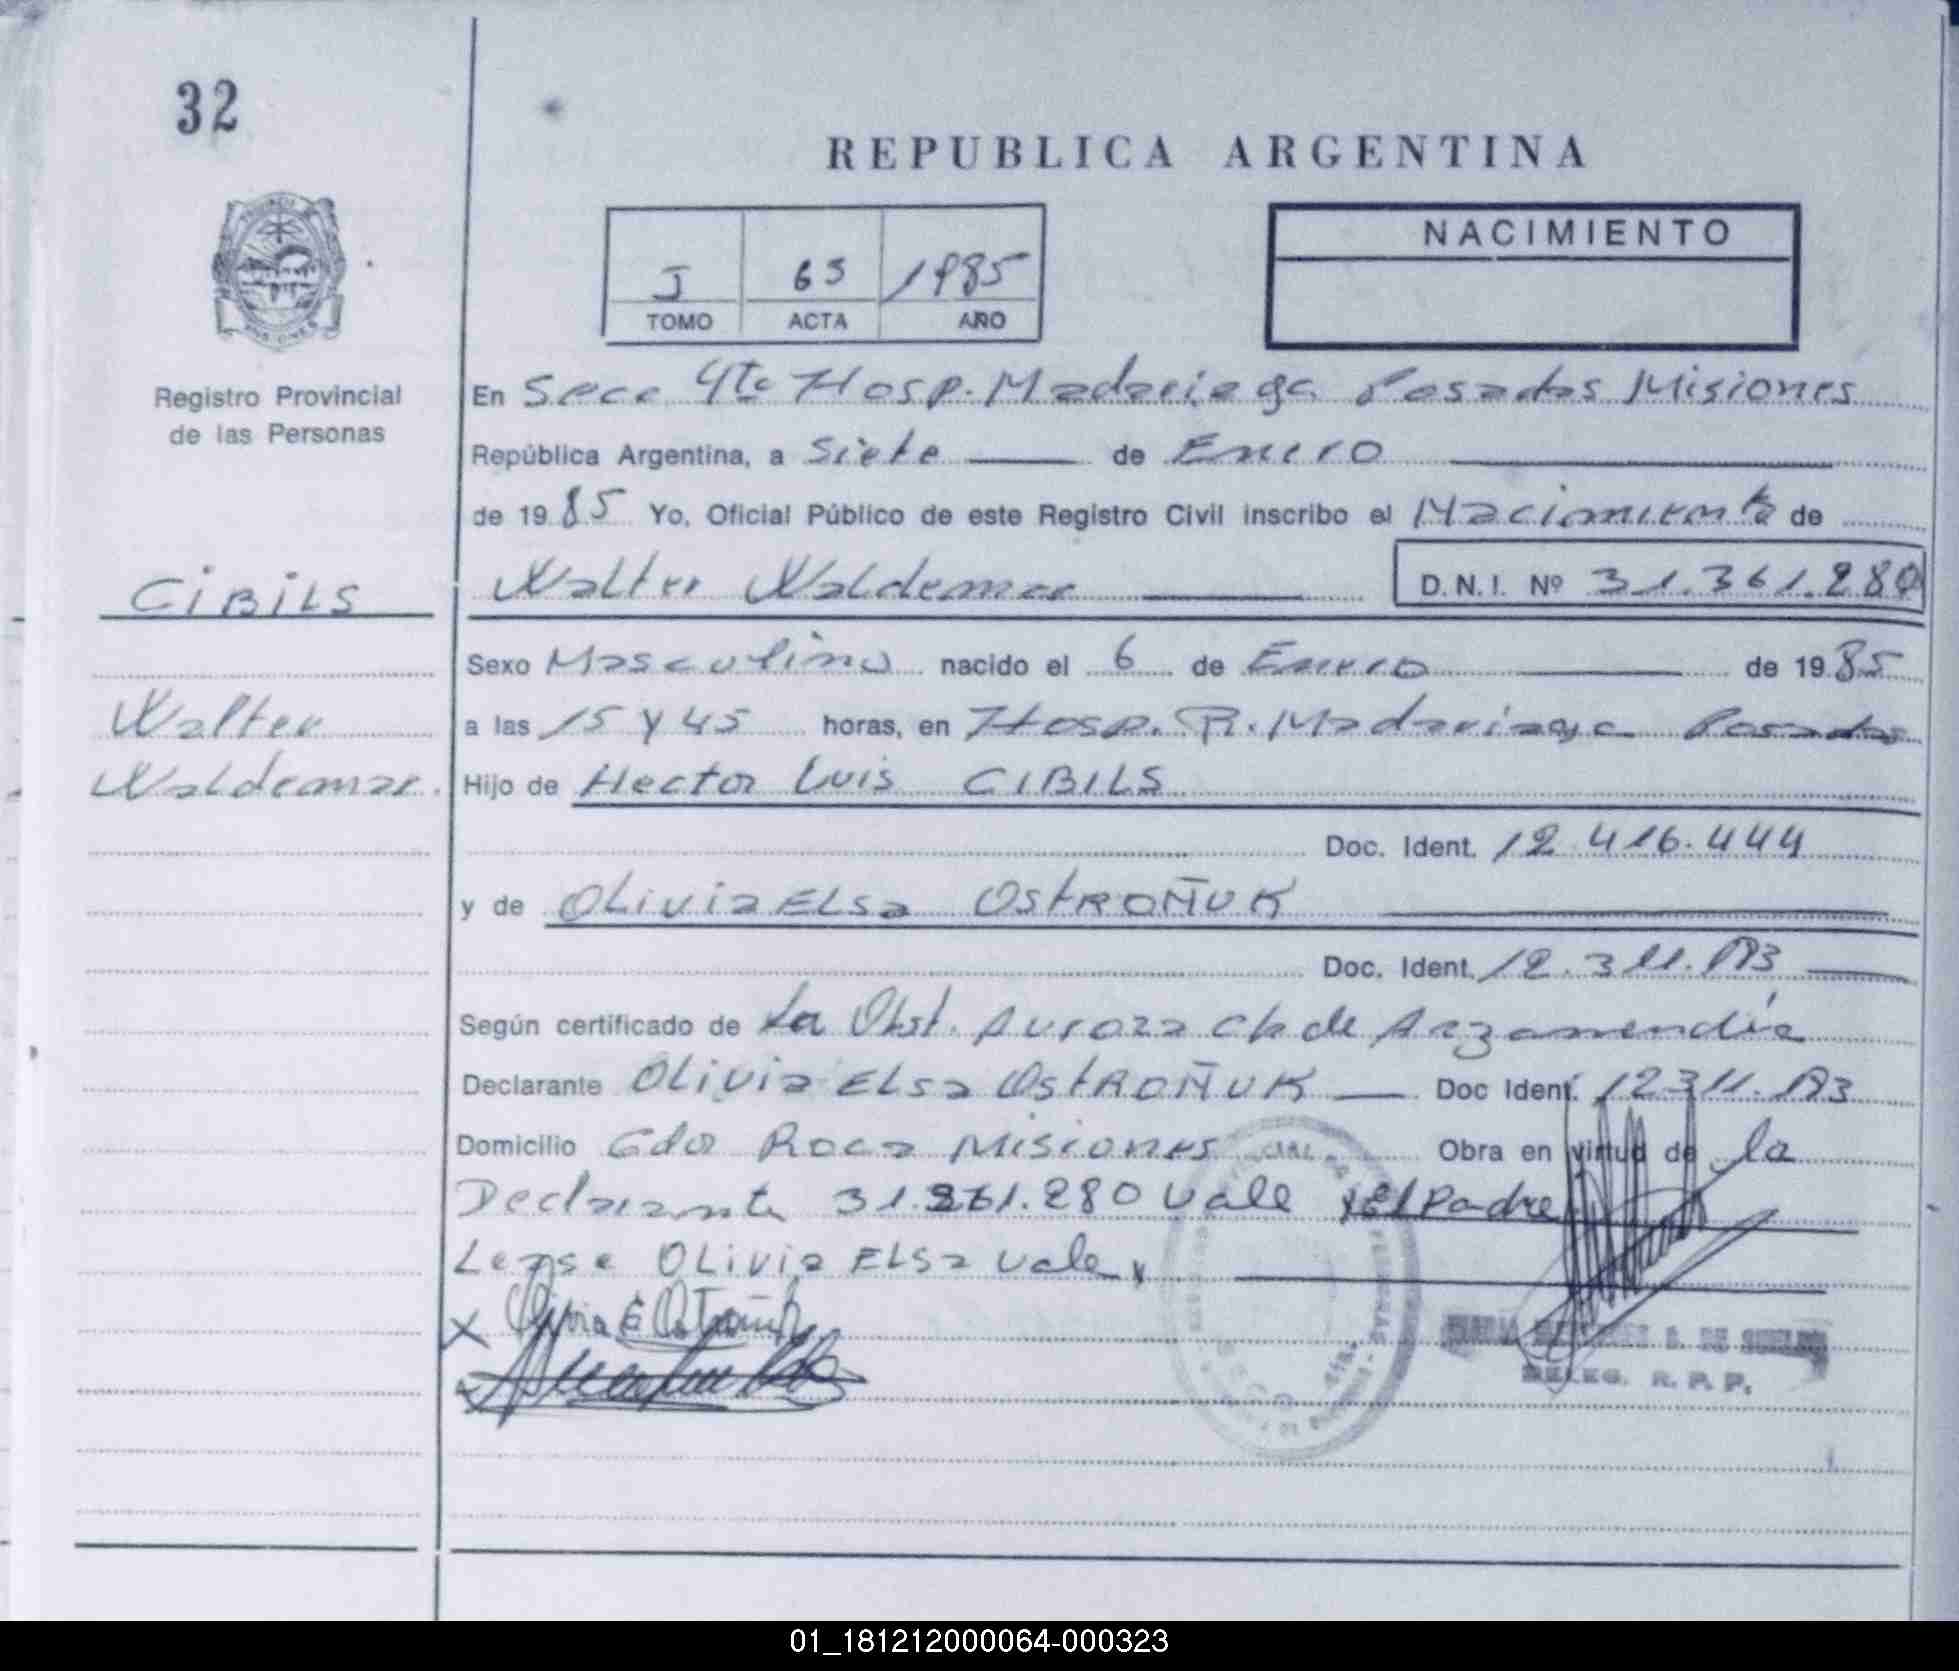 32
REPUBLICA ARGENTINA
NACIMIENTO
I 63 1985
TOMO ACTA AÑO
Registro Provincial
de las Personas
En Secc 4ta Hosp. Madariaga Posadas Misiones
República Argentina, a Siete de Enero
de 1985 Yo, Oficial Público de este Registro Civil inscribo el Nacimiento de
CIBILS
Walter Waldemar D.N.I. Nº 31.361.280
Sexo Masculino nacido el 6 de Enero de 1985
Walter
Waldemar.
a las 15 y 45 horas, en Hosp. R. Madariaga Posadas
Hijo de Hector Luis CIBILS
Doc. Ident. 12.416.444
y de Olivia ELsa OstROÑUK
Doc. Ident. 12.311.
Según certificado de La Obst. Aurora Ch de Arzamendia
Declarante Olivia ELsa OstROÑUK Doc Ident. 12311.
Domicilio Gdor Roca Misiones Obra en virtud de la
Declarante 31.361.280 vale y El Padre
Lease OLivia ELsa vale
X Olivia E Ostroñuk
DE
DELEG. R. P. P.
01_181212000064-000323